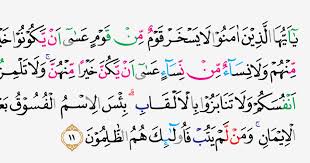 يٰٓاَيُّهَا الَّذِيْنَ اٰمَنُوْا لَا يَسْخَرْ قَوْمٌ مِّنْ قَوْمٍ عَسٰٓى اَنْ يَّكُوْنُوْا خَيْرًا
مِّنْهُمْ وَلَا نِسَاۤءٌ مِّنْ نِّسَاۤءٍ عَسٰٓى اَنْ يَّكُنَّ خَيْرًا مِّنْهُنَّۚ وَلَا تَلْمِزُوْٓا
اَنْفُسَكُمْ وَلَا تَنَابَزُوْا بِالْاَلْقَابِۗ بِئْسَ الِاسْمُ الْفُسُوْقُ بَعْدَ
الْاِيْمَانِۚ وَمَنْ لَّمْ يَتُبْ فَاُولٰۤىِٕكَ هُمُ الظّٰلِمُوْنَ ١١